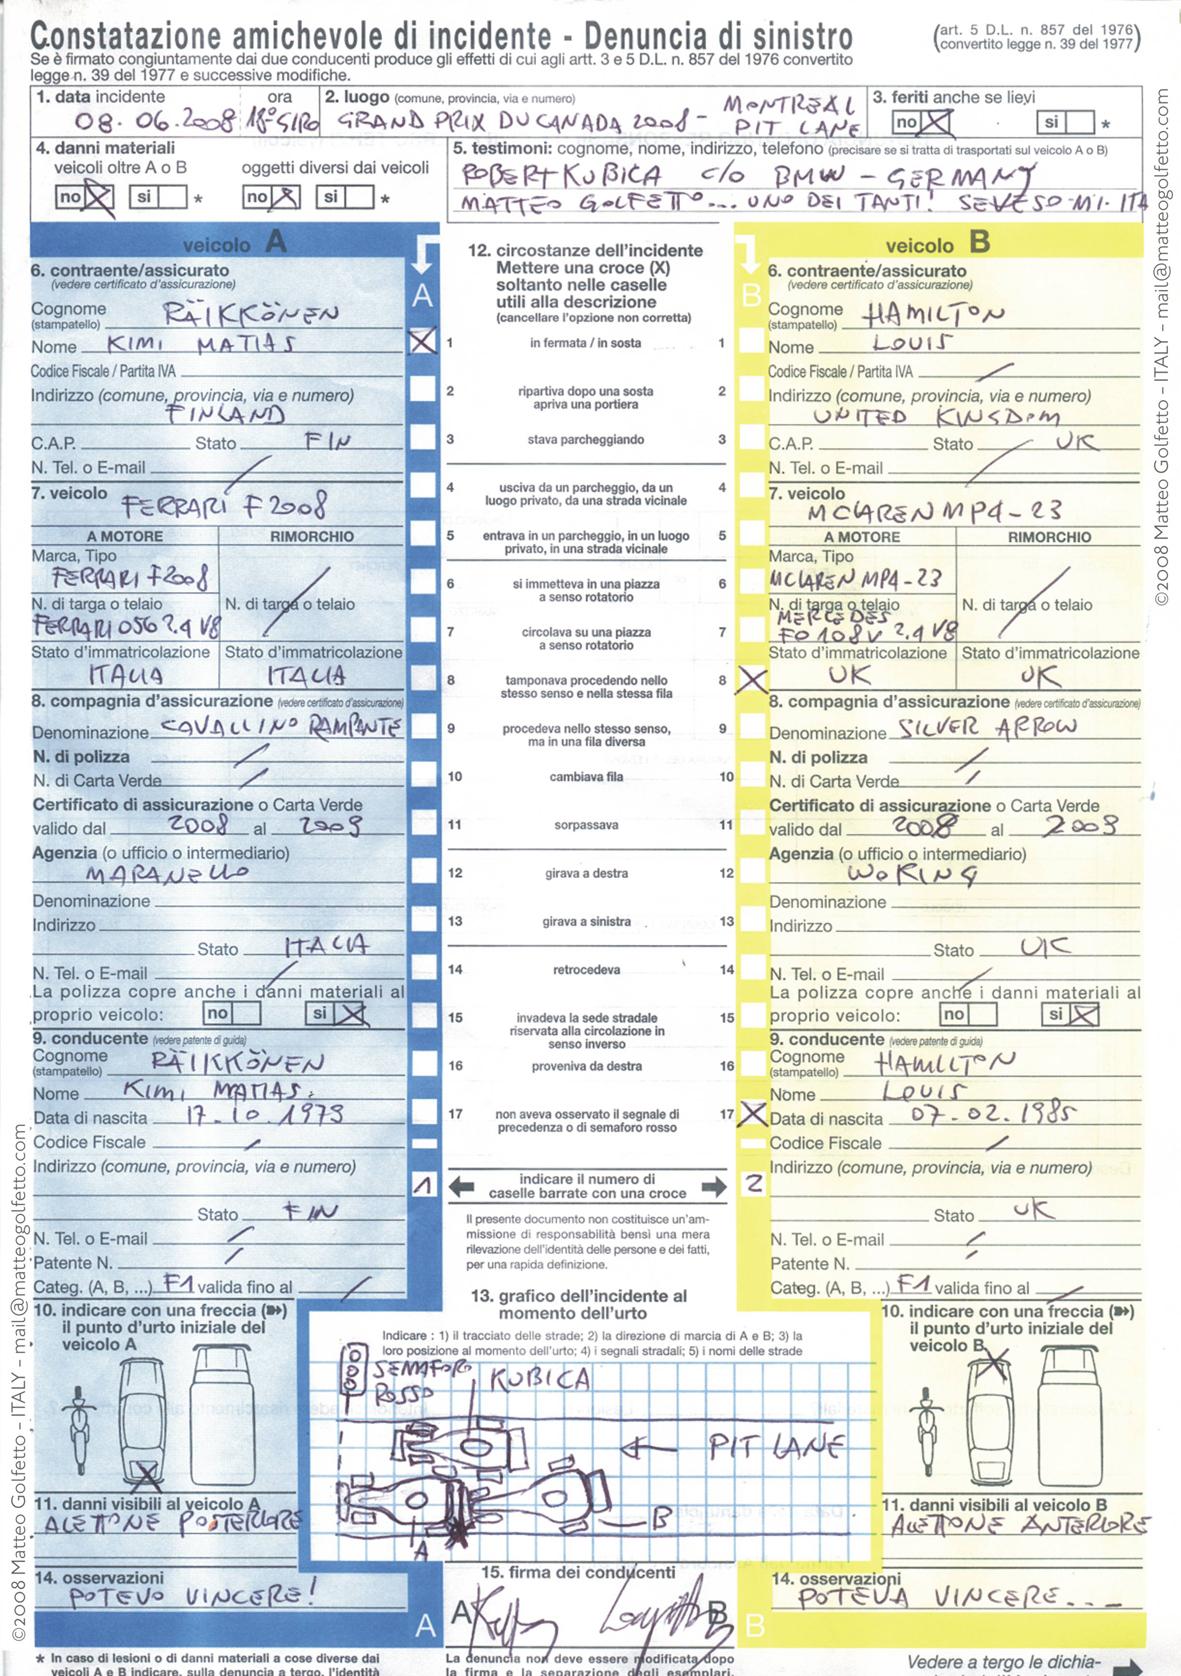 Constatazione amichevole di incidente - Denuncia di sinistro
(art. 5 D.L. n. 857 del 1976)
(convertito legge n. 39 del 1977)
Se è firmato congiuntamente dai due conducenti produce gli effetti di cui agli artt. 3 e 5 D.L. n. 857 del 1976 convertito
legge n. 39 del 1977 e successive modifiche.
1. data incidente ora
08. 06. 2008 18° GIRO
2. luogo (comune, provincia, via e numero)
GRAND PRIX DU CANADA 2008 - MONTREAL
PIT LANE
3. feriti anche se lievi
no si *
4. danni materiali
veicoli oltre A o B oggetti diversi dai veicoli
no si * no si *
5. testimoni: cognome, nome, indirizzo, telefono (precisare se si tratta di trasportati sul veicolo A o B)
ROBERT KUBICA C/O BMW - GERMANY
MATTEO GOLFETTO... UNO DEI TANTI! SEVESO-MI-ITA
veicolo A
6. contraente/assicurato
(vedere certificato d'assicurazione)
Cognome RÄIKKÖNEN
(stampatello)
Nome KIMI MATIAS
Codice Fiscale / Partita IVA
Indirizzo (comune, provincia, via e numero)
FINLAND
C.A.P. Stato FIN
N. Tel. o E-mail
7. veicolo FERRARI F2008
A MOTORE RIMORCHIO
Marca, Tipo
FERRARI F2008
N. di targa o telaio N. di targa o telaio
FERRARI 056 2.4 V8
Stato d'immatricolazione Stato d'immatricolazione
ITALIA ITALIA
8. compagnia d'assicurazione (vedere certificato d'assicurazione)
Denominazione CAVALLINO RAMPANTE
N. di polizza
N. di Carta Verde
Certificato di assicurazione o Carta Verde
valido dal 2008 al 2009
Agenzia (o ufficio o intermediario)
MARANELLO
Denominazione
Indirizzo
Stato ITALIA
N. Tel. o E-mail
La polizza copre anche i danni materiali al
proprio veicolo: no si
9. conducente (vedere patente di guida)
Cognome RÄIKKÖNEN
(stampatello)
Nome KIMI MATIAS.
Data di nascita 17-10.1979
Codice Fiscale
Indirizzo (comune, provincia, via e numero)
Stato FIN
N. Tel. o E-mail
Patente N.
Categ. (A, B, ...) F1 valida fino al
10. indicare con una freccia
il punto d'urto iniziale del
veicolo A
11. danni visibili al veicolo A
ALETTONE POSTERIORE
14. osservazioni
POTEVO VINCERE!
A
12. circostanze dell'incidente
Mettere una croce (X)
soltanto nelle caselle
utili alla descrizione
(cancellare l'opzione non corretta)
A B
1 in fermata / in sosta 1
2 ripartiva dopo una sosta 2
apriva una portiera
3 stava parcheggiando 3
4 usciva da un parcheggio, da un 4
luogo privato, da una strada vicinale
5 entrava in un parcheggio, in un luogo 5
privato, in una strada vicinale
6 si immetteva in una piazza 6
a senso rotatorio
7 circolava su una piazza 7
a senso rotatorio
8 tamponava procedendo nello 8
stesso senso e nella stessa fila
9 procedeva nello stesso senso, 9
ma in una fila diversa
10 cambiava fila 10
11 sorpassava 11
12 girava a destra 12
13 girava a sinistra 13
14 retrocedeva 14
15 invadeva la sede stradale 15
riservata alla circolazione in
senso inverso
16 proveniva da destra 16
17 non aveva osservato il segnale di 17
precedenza o di semaforo rosso
1 indicare il numero di 2
caselle barrate con una croce
Il presente documento non costituisce un'am-
missione di responsabilità bensì una mera
rilevazione dell'identità delle persone e dei fatti,
per una rapida definizione.
13. grafico dell'incidente al
momento dell'urto
Indicare : 1) il tracciato delle strade; 2) la direzione di marcia di A e B; 3) la
loro posizione al momento dell'urto; 4) i segnali stradali; 5) i nomi delle strade
SEMAFORO
ROSSO
KUBICA
PIT LANE
B
A
15. firma dei conducenti
A B
veicolo B
6. contraente/assicurato
(vedere certificato d'assicurazione)
Cognome HAMILTON
(stampatello)
Nome LOUIS
Codice Fiscale / Partita IVA
Indirizzo (comune, provincia, via e numero)
UNITED KINGDOM
C.A.P. Stato UK
N. Tel. o E-mail
7. veicolo
MCLAREN MP4-23
A MOTORE RIMORCHIO
Marca, Tipo
MCLAREN MP4-23
N. di targa o telaio N. di targa o telaio
MERCEDES
FO 108V 2.4 V8
Stato d'immatricolazione Stato d'immatricolazione
UK UK
8. compagnia d'assicurazione (vedere certificato d'assicurazione)
Denominazione SILVER ARROW
N. di polizza
N. di Carta Verde
Certificato di assicurazione o Carta Verde
valido dal 2008 al 2009
Agenzia (o ufficio o intermediario)
WOKING
Denominazione
Indirizzo
Stato UK
N. Tel. o E-mail
La polizza copre anche i danni materiali al
proprio veicolo: no si
9. conducente (vedere patente di guida)
Cognome HAMILTON
(stampatello)
Nome LOUIS
Data di nascita 07-02.1985
Codice Fiscale
Indirizzo (comune, provincia, via e numero)
Stato UK
N. Tel. o E-mail
Patente N.
Categ. (A, B, ...) F1 valida fino al
10. indicare con una freccia
il punto d'urto iniziale del
veicolo B
11. danni visibili al veicolo B
ALETTONE ANTERIORE
14. osservazioni
POTEVA VINCERE...
B
* In caso di lesioni o di danni materiali a cose diverse dai
veicoli A e B indicare, sulla denuncia a tergo, l'identità
La denuncia non deve essere modificata dopo
la firma e la separazione degli esemplari.
Vedere a tergo le dichia-
©2008 Matteo Golfetto - ITALY - mail@matteogolfetto.com
©2008 Matteo Golfetto - ITALY - mail@matteogolfetto.com